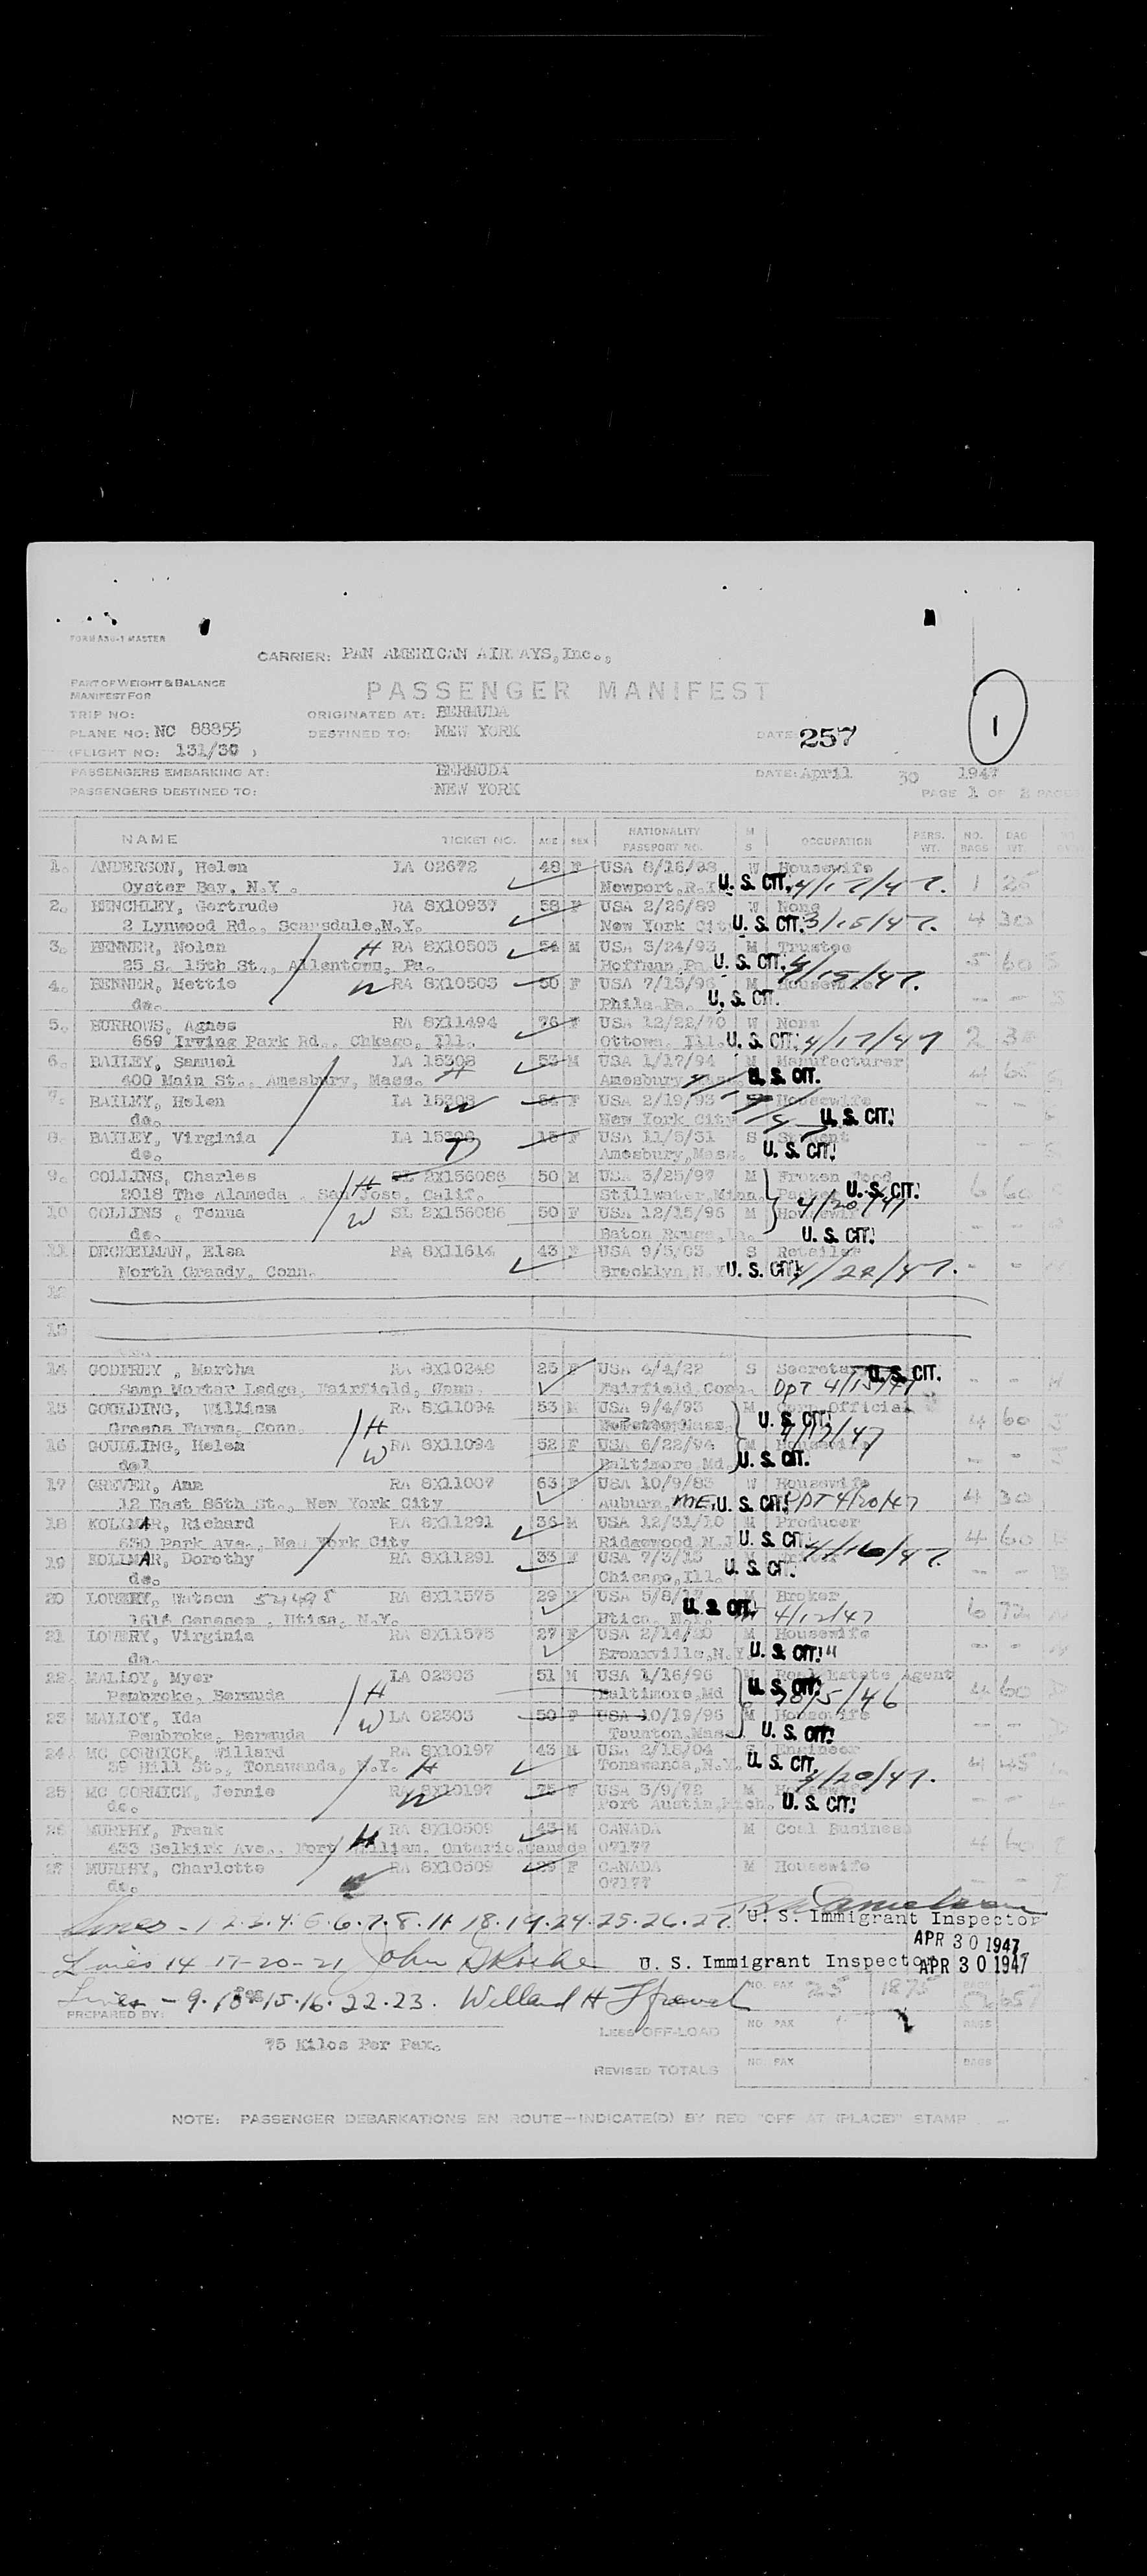 FORM ASU-1 MASTER
CARRIER: PAN AMERICAN AIRWAYS,Inc.,
PART OF WEIGHT & BALANCE
MANIFEST FOR
PASSENGER MANIFEST
1
TRIP NO: ORIGINATED AT: BERMUDA
PLANE NO: NC 88855 DESTINED TO: NEW YORK DATE: 257
(FLIGHT NO: 131/30 )
PASSENGERS EMBARKING AT: BERMUDA DATE: April 30 1947
PASSENGERS DESTINED TO: NEW YORK PAGE 1 OF 2 PAGES
NAME TICKET NO. AGE SEX NATIONALITY PASSPORT NO. M S OCCUPATION PERS. WT. NO. BAGS BAG WT.
1. ANDERSON, Helen LA 02672 48 F USA 8/16/98 W Housewife
Oyster Bay, N.Y. Newport,R.I. U. S. CIT. 4/17/47. 1 25
2. BENCHLEY, Gertrude RA 8X10937 58 F USA 2/26/89 W None
2 Lynwood Rd., Scarsdale,N.Y. New York City U. S. CIT. 3/15/47. 4 30
3. BENNER, Nolan H RA 8X10503 54 M USA 3/24/93 M Trustee
25 S. 15th St., Allentown, Pa. Hoffman,Pa. U. S. CIT. 4/15/47. 5 60
4. BENNER, Mettie W RA 8X10503 50 F USA 7/13/96 M Housewife
do. Phila Pa. U. S. CIT.
5. BURROWS, Agnes RA 8X11494 76 F USA 12/22/70 W None
669 Irving Park Rd., Chkago, Ill. Ottown, Ill. U. S. CIT. 4/17/47 2 30
6. BAILEY, Samuel LA 15308 53 M USA 1/17/94 M Manufacturer
400 Main St., Amesbury, Mass. H Amesbury U. S. CIT.
7. BAILEY, Helen LA 15308 W 54 F USA 2/19/93 Housewife
do. New York City U. S. CIT.
8. BAILEY, Virginia LA 15308 D 15 F USA 11/5/31 S Student
do. Amesbury,Mass. U. S. CIT.
9. COLLINS, Charles H SL 2X156086 50 M USA 3/25/97 M Frozen food
2018 The Alameda , San Jose, Calif. Stillwater,Minn U. S. CIT. 6 60
10 COLLINS , Tenua W SL 2X156086 50 F USA 12/15/96 M Housewife 4/20/47
do. Baton Rouge,La. U. S. CIT.
11 DECKELMAN, Elsa RA 8X11614 43 F USA 9/5/03 S Retailer
North Grandy, Conn. Brooklyn,N.Y. U. S. CIT. 4/22/47.
12
13
14 GODFREY , Martha RA 8X10248 25 F USA 4/4/22 S Secretary U. S. CIT.
Samp Mortar Ledge, Fairfield, Conn. Fairfield,Conn. DPT 4/15/47
15 GOULDING, William RA 8X11094 53 M USA 9/4/93 M Official
Greens Farms, Conn. H U. S. CIT. 4/17/47 4 60
16 GOULDING, Helen W RA 8X11094 52 F USA 6/22/94 M Housewife
do. Baltimore,Md. U. S. CIT.
17 GREVER, Ann RA 8X11007 63 F USA 10/9/83 W Housewife
12 East 86th St., New York City Auburn, ME. U. S. CIT. DPT 4/20/47 4 30
18 KOLLMAR, Richard RA 8X11291 36 M USA 12/31/10 M Producer
630 Park Ave., New York City Ridgewood N.J. U. S. CIT. 4/16/47. 4 60
19 KOLLMAR, Dorothy RA 8X11291 33 F USA 7/3/13
do. Chicago,Ill. U. S. CIT.
20 LOWERY, Watson RA 8X11575 29 M USA 5/8/17 M Broker
1614 Genesee , Utica, N.Y. Utica, N.Y. U. S. CIT. 4/12/47 6 72
21 LOWERY, Virginia RA 8X11575 27 F USA 2/14/20 M Housewife
do. Bronxville,N.Y. U. S. CIT. "
22 MALLOY, Myer LA 02303 51 M USA 1/16/96 M Real Estate Agent
Pembroke, Bermuda H Baltimore,Md U. S. CIT. 4 60
23 MALLOY, Ida W LA 02303 50 F USA 10/19/96 M Housewife
Pembroke, Bermuda Taunton,Mass U. S. CIT.
24 MC CORMICK, Willard RA 8X10197 43 M USA 2/18/04 S Engineer
39 Hill St., Tonawanda, N.Y. H Tonawanda,N.Y. U. S. CIT. 4/20/47. 4 45
25 MC CORMICK, Jennie RA 8X10197 W 75 F USA 3/9/72 M Housewife
do. Port Austin,Mich. U. S. CIT.
26 MURPHY, Frank RA 8X10509 43 M CANADA M Coal Business
433 Selkirk Ave., Fort William, Ontario,Canada H 07177 4 60
27 MURPHY, Charlotte W RA 8X10509 29 F CANADA M Housewife
do. 07177
Lines - 1-2-3-4-5-6-7-8-11-18-19-24-25-26-27. U. S. Immigrant Inspector
APR 30 1947
Lines 14-17-20-21 U. S. Immigrant Inspector APR 30 1947
Lines - 9-10-15-16-22-23. Willard H NO. PAX 25 1875
PREPARED BY:
75 Kilos Per Pax. LESS OFF-LOAD NO. PAX BAGS
REVISED TOTALS NO. PAX BAGS
NOTE: PASSENGER DEBARKATIONS EN ROUTE—INDICATE(D) BY RED "OFF AT (PLACE)" STAMP